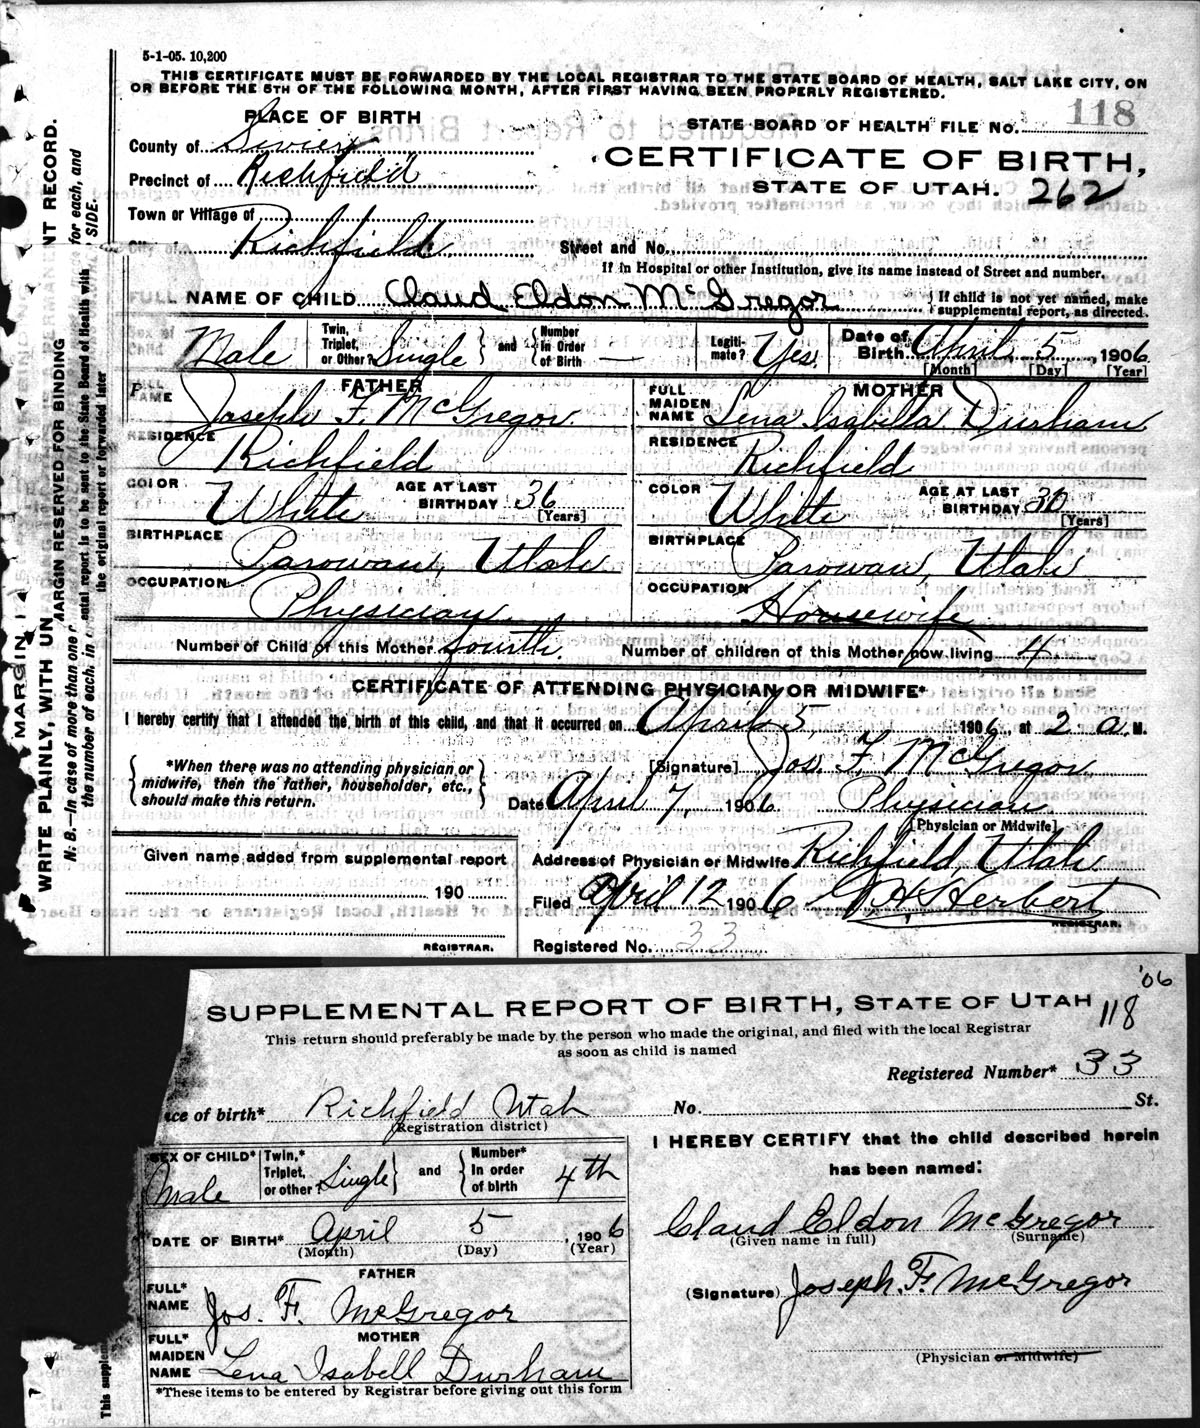 5-1-05. 10,200
THIS CERTIFICATE MUST BE FORWARDED BY THE LOCAL REGISTRAR TO THE STATE BOARD OF HEALTH, SALT LAKE CITY, ON
OR BEFORE THE 5TH OF THE FOLLOWING MONTH, AFTER FIRST HAVING BEEN PROPERLY REGISTERED.
PLACE OF BIRTH
County of Sevier
Precinct of Richfield
Town or Village of
City of Richfield
STATE BOARD OF HEALTH FILE No. 118
CERTIFICATE OF BIRTH,
STATE OF UTAH. 262
Street and No.
If in Hospital or other Institution, give its name instead of Street and number.
FULL NAME OF CHILD Claud Eldon McGregor { If child is not yet named, make
supplemental report, as directed.
Sex of Child Male Twin, Triplet, or Other? Single } and { Number In Order of Birth — Legiti- mate? Yes. Date of Birth April 5 1906
[Month] [Day] [Year]
FATHER
FULL NAME Joseph F. McGregor
RESIDENCE Richfield
COLOR White AGE AT LAST BIRTHDAY 36 [Years]
BIRTHPLACE Parowan, Utah
OCCUPATION Physician
MOTHER
FULL MAIDEN NAME Lena Isabella Durham
RESIDENCE Richfield
COLOR White AGE AT LAST BIRTHDAY 30 [Years]
BIRTHPLACE Parowan, Utah
OCCUPATION Housewife
Number of Child of this Mother fourth. Number of children of this Mother now living 4
CERTIFICATE OF ATTENDING PHYSICIAN OR MIDWIFE*
I hereby certify that I attended the birth of this child, and that it occurred on April 5, 1906, at 2 a. M.
{ *When there was no attending physician or
midwife, then the father, householder, etc.,
should make this return. }
[Signature] Jos. F. McGregor
Date April 7, 1906 Physician
[Physician or Midwife]
Given name added from supplemental report
190
REGISTRAR.
Address of Physician or Midwife Richfield, Utah
Filed April 12 1906 Herbert
REGISTRAR.
Registered No. 33
MARGIN RESERVED FOR BINDING
WRITE PLAINLY, WITH UN NT RECORD.
N. B.—In case of more than one for each, and
the number of each, in SIDE.
ental report is to be sent to the State Board of Health with
the original report or forwarded later
'06
SUPPLEMENTAL REPORT OF BIRTH, STATE OF UTAH 118
This return should preferably be made by the person who made the original, and filed with the local Registrar
as soon as child is named
Registered Number* 33
ce of birth* Richfield Utah
(Registration district)
No. St.
SEX OF CHILD* Male Twin,* Triplet, or other? Single } and { Number* In order of birth 4th
DATE OF BIRTH* April 5, 1906
(Month) (Day) (Year)
FATHER
FULL* NAME Jos. F. McGregor
MOTHER
FULL* MAIDEN NAME Lena Isabell Durham
*These items to be entered by Registrar before giving out this form
I HEREBY CERTIFY that the child described herein
has been named:
Claud Eldon McGregor
(Given name in full) (Surname)
(Signature) Joseph. F. McGregor
(Physician or Midwife)
This supplem